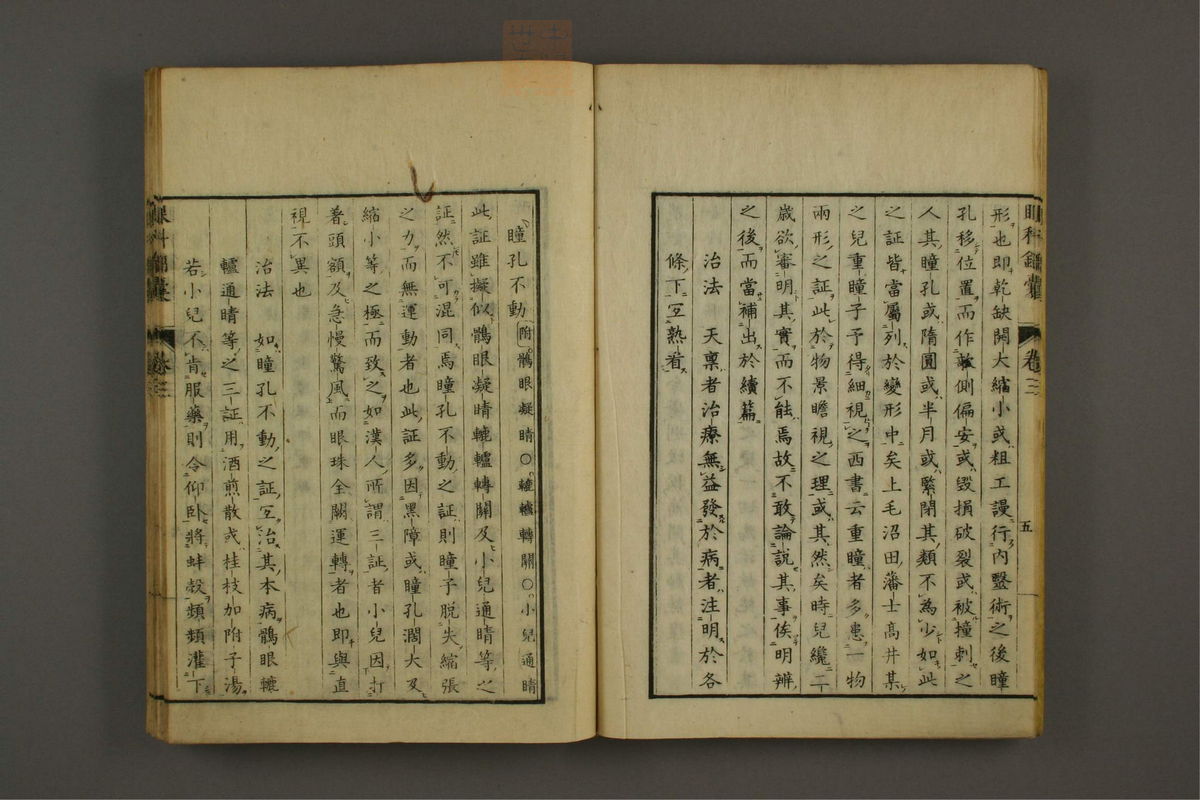 眼科錦囊 卷三 五
形也即乾缺開大縮小或粗工謾行内翳術之後瞳
孔移位置而作欹側偏安或毀損破裂或被撞刺之
人其瞳孔或隋圓或半月或緊閉其類不為少如此
之証皆當屬列於變形中矣上毛沼田藩士高井某
之兒重瞳子予得細視之西書云重瞳者多患一物
兩形之証此於物景瞻視之理或其然矣時兒纔二
歲欲審明其實而不能焉故不敢論說其事俟明辨
之後而當補出於續篇
治法 天稟者治療無益發於病者注明於各
條下互熟看
瞳孔不動 附 鶻眼凝睛○轆轤轉關○小兒通睛
此証雖擬似鶻眼凝睛轆轤轉關及小兒通睛等之
証然不可混同焉瞳孔不動之証則瞳子脫失縮張
之力而無運動者也此証多因黑障或瞳孔濶大及
縮小等之極而致之如漢人所謂三証者小兒因打
著頭額及急慢驚風而眼珠全關運轉者也即與直
視不異也
治法 如瞳孔不動之証宜治其本病鶻眼轆
轤通睛等之三証用酒煎散或桂枝加附子湯
若小兒不肯服藥則令仰臥將蚌殼類類灌下
眼科錦囊 卷三